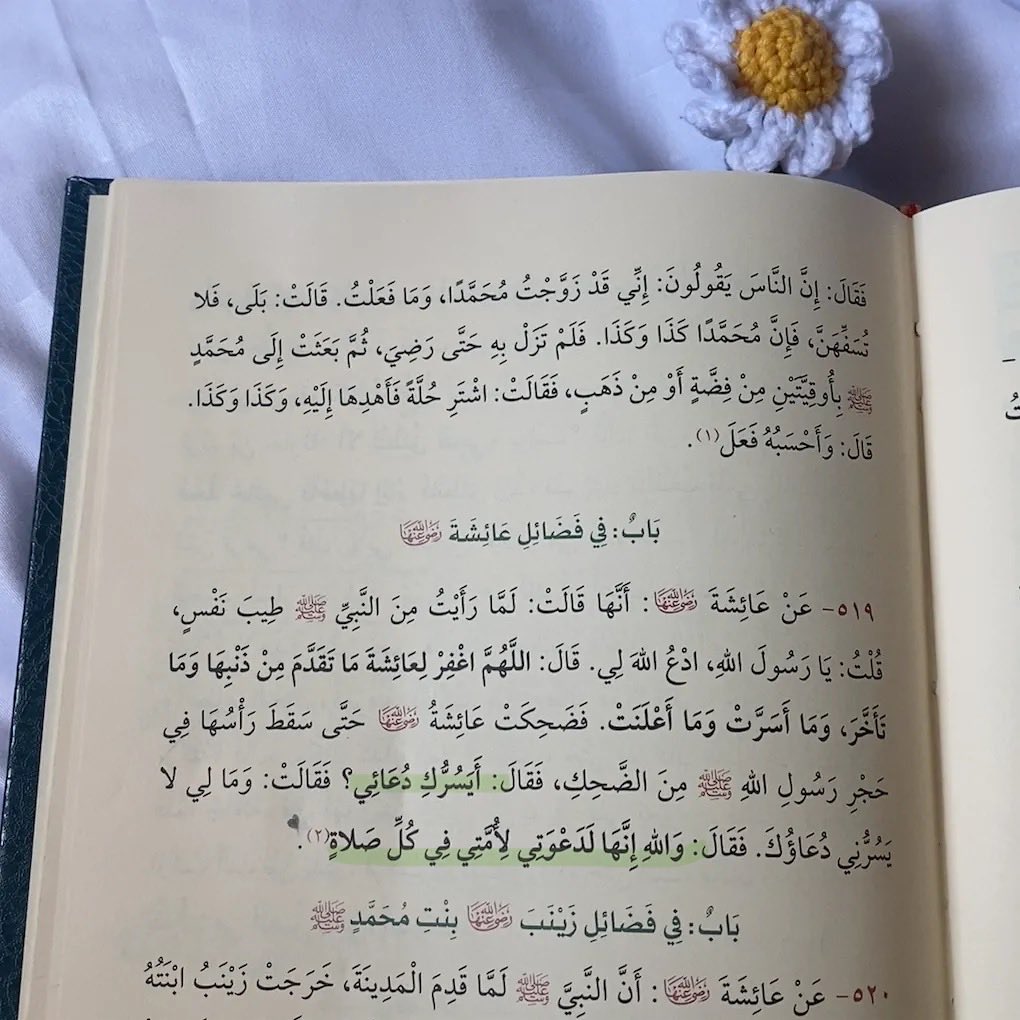 فَقَالَ: إِنَّ النَّاسَ يَقُولُونَ: إِنِّي قَدْ زَوَّجْتُ مُحَمَّدًا، وَمَا فَعَلْتُ. قَالَتْ: بَلَى، فَلَا
تُسَفِّهَنَّ، فَإِنَّ مُحَمَّدًا كَذَا وَكَذَا. فَلَمْ تَزَلْ بِهِ حَتَّى رَضِيَ، ثُمَّ بَعَثَتْ إِلَى مُحَمَّدٍ
ﷺ بِأُوقِيَّتَيْنِ مِنْ فِضَّةٍ أَوْ مِنْ ذَهَبٍ، فَقَالَتْ: اشْتَرِ حُلَّةً فَأَهْدِهَا إِلَيْهِ، وَكَذَا وَكَذَا.
قَالَ: وَأَحْسَبُهُ فَعَلَ(١).
بَابٌ: فِي فَضَائِلِ عَائِشَةَ رَضِيَ اللهُ عَنْهَا
٥١٩- عَنْ عَائِشَةَ رَضِيَ اللهُ عَنْهَا: أَنَّهَا قَالَتْ: لَمَّا رَأَيْتُ مِنَ النَّبِيِّ ﷺ طِيبَ نَفْسٍ،
قُلْتُ: يَا رَسُولَ اللهِ، ادْعُ اللهَ لِي. قَالَ: اللَّهُمَّ اغْفِرْ لِعَائِشَةَ مَا تَقَدَّمَ مِنْ ذَنْبِهَا وَمَا
تَأَخَّرَ، وَمَا أَسَرَّتْ وَمَا أَعْلَنَتْ. فَضَحِكَتْ عَائِشَةُ رَضِيَ اللهُ عَنْهَا حَتَّى سَقَطَ رَأْسُهَا فِي
حَجْرِ رَسُولِ اللهِ ﷺ مِنَ الضَّحِكِ، فَقَالَ: أَيَسُرُّكِ دُعَائِي؟ فَقَالَتْ: وَمَا لِي لَا
يَسُرُّنِي دُعَاؤُكَ. فَقَالَ: وَاللهِ إِنَّهَا لَدَعْوَتِي لِأُمَّتِي فِي كُلِّ صَلَاةٍ(٢).
بَابٌ: فِي فَضَائِلِ زَيْنَبَ رَضِيَ اللهُ عَنْهَا بِنْتِ مُحَمَّدٍ ﷺ
٥٢٠- عَنْ عَائِشَةَ رَضِيَ اللهُ عَنْهَا: أَنَّ النَّبِيَّ ﷺ لَمَّا قَدِمَ الْمَدِينَةَ، خَرَجَتْ زَيْنَبُ ابْنَتُهُ